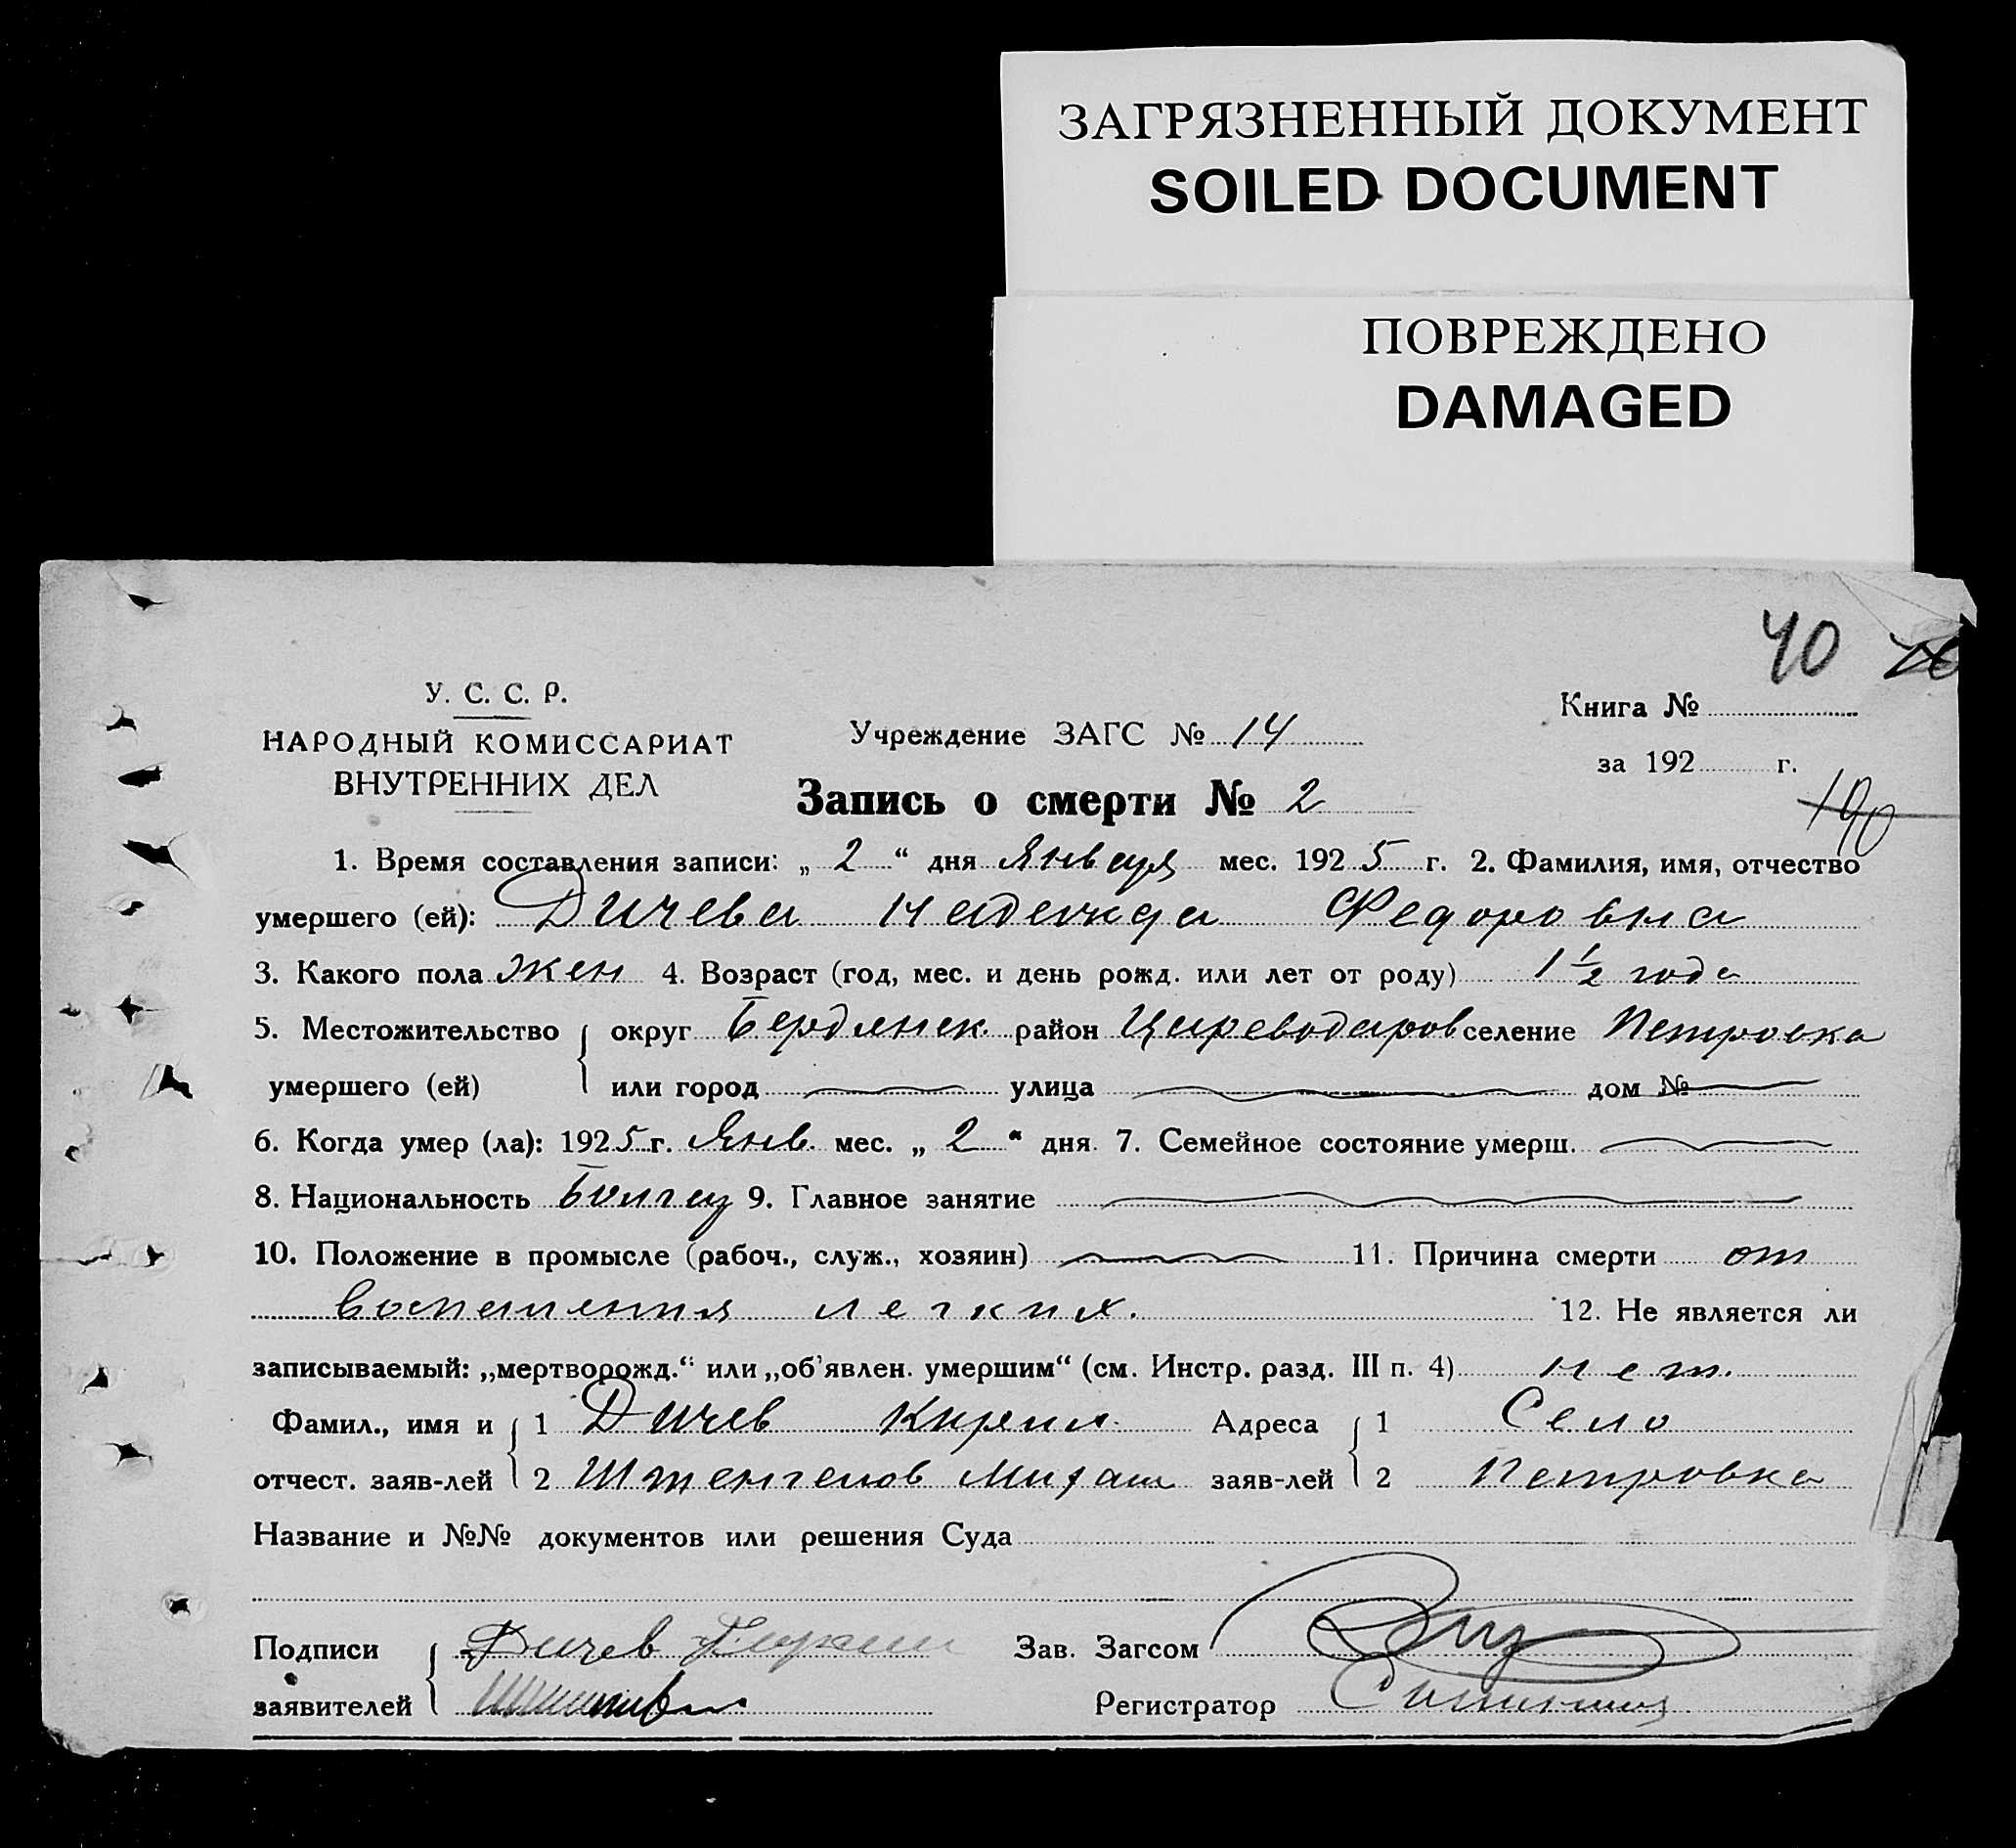 ЗАГРЯЗНЕННЫЙ ДОКУМЕНТ
SOILED DOCUMENT
ПОВРЕЖДЕНО
DAMAGED
40
У. С. С. Р.
НАРОДНЫЙ КОМИССАРИАТ
ВНУТРЕННИХ ДЕЛ
Учреждение ЗАГС № 14
Книга №
за 192 г.
190
Запись о смерти № 2
1. Время составления записи: „ 2 “ дня Января мес. 192 5 г. 2. Фамилия, имя, отчество
умершего (ей): Дичева Надежда Федоровна
3. Какого пола жен 4. Возраст (год, мес. и день рожд. или лет от роду) 1 ½ года
5. Местожительство округ Бердянск. район Цареводаров селение Петровка
умершего (ей) или город улица дом №
6. Когда умер (ла): 192 5 г. Янв. мес. „ 2 “ дня. 7. Семейное состояние умерш.
8. Национальность Болгар 9. Главное занятие
10. Положение в промысле (рабоч., служ., хозяин) 11. Причина смерти от
воспаления легких. 12. Не является ли
записываемый: „мертворожд.“ или „об'явлен. умершим“ (см. Инстр. разд. III п. 4) нет.
Фамил., имя и 1 Дичев Кирил Адреса 1 Село
отчест. заяв-лей 2 Штенгелов Михаил заяв-лей 2 Петровка
Название и №№ документов или решения Суда
Подписи Дичев Кирил Зав. Загсом
заявителей Регистратор